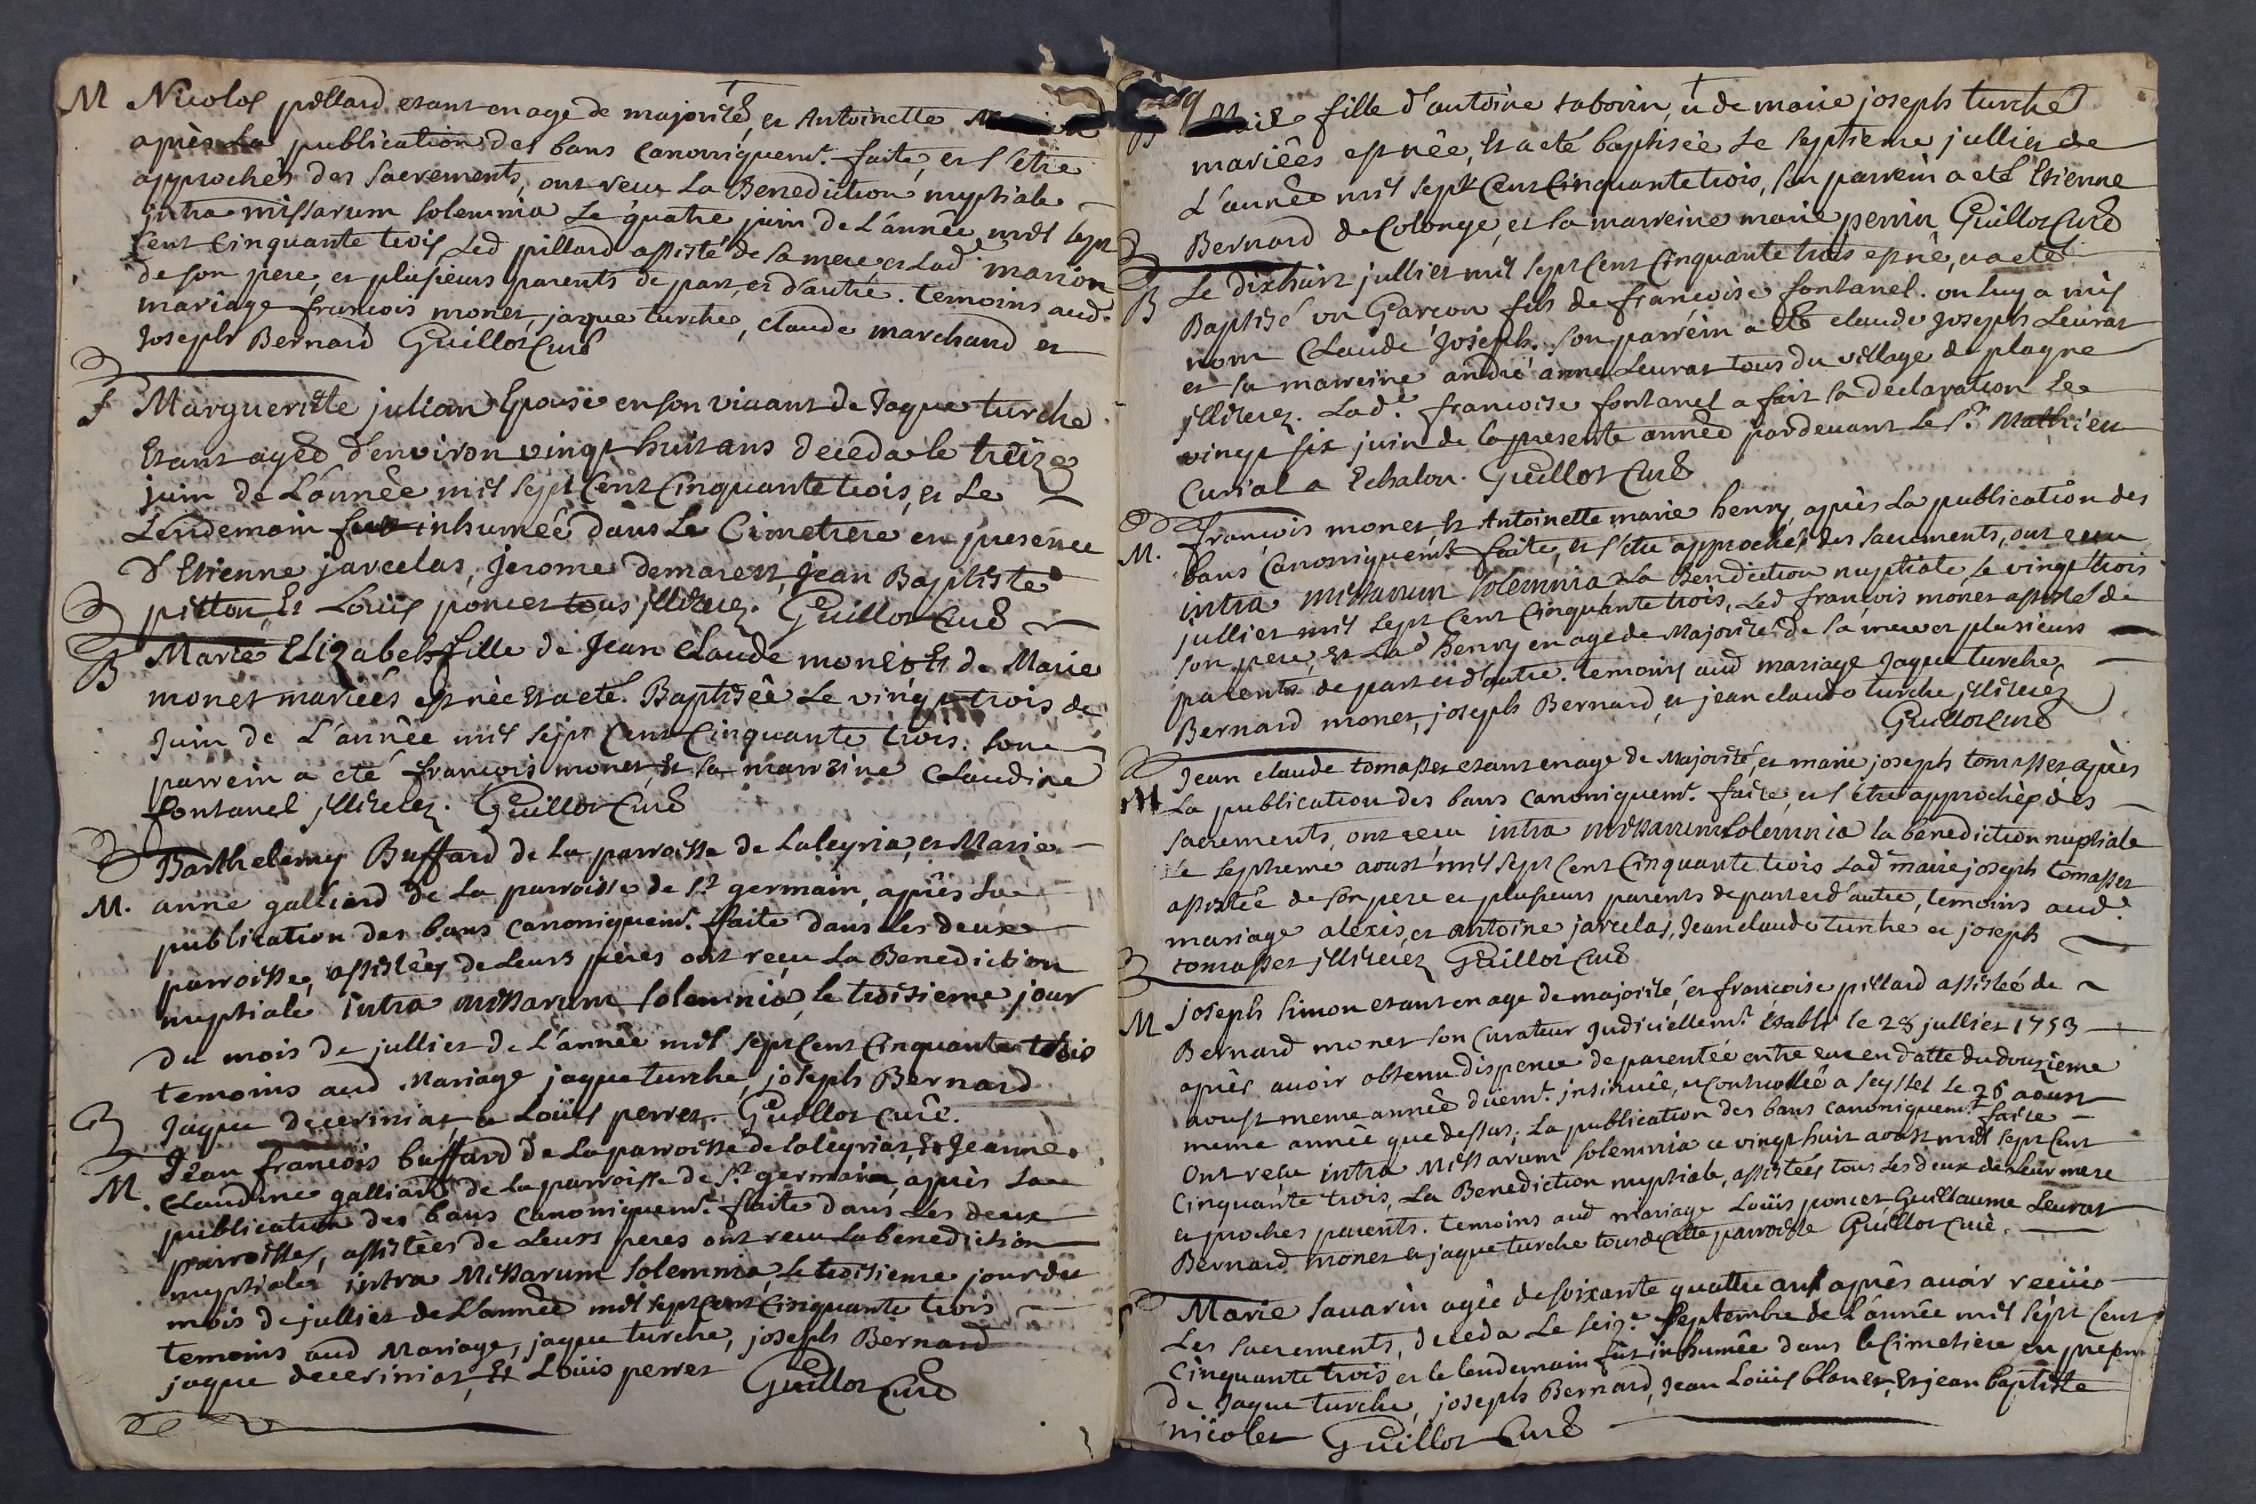 M Nicolas pillard etant en age de majorité, et Antoinette
après la publication des bans canoniquemt. faite, et s'être
approchés des sacrements, ont reçu la Benediction nuptiale
intra missarum solemnia le quatre juin de L'année mil sept
cent cinquante trois led pillard assisté de sa mere, et lad marion
de son pere, et plusieurs parents de part, et d'autre. temoins aud.
mariage francois monet, jaque turche, claude marchand et
Joseph Bernard Guillot Curé
Margueritte julian Epouse en son vivant de Jaque turche
Etant ageé d'environ vingt huit ans deceda le treize
juin de L'année mil sept Cent Cinquante trois, et Le
Lendemain fut inhumée dans Le Cimetiere en presence
d'Etienne jarcelas, Jerome demarest, Jean Baptiste
pitton, Et Louis poncet tous illiterez. Guillot Curé
B Marie Elizabeth fille de Jean Claude monet Et de Marie
monet mariées est née Et a eté Baptisée Le vingt trois de
Juin de L'année mil sept Cent Cinquante trois. son
parrein a eté francois monet Et sa marreine Claudine
fontanel illiterez. Guillot Curé
Barthelemy Buffard de la parroisse de Laleyria, et Marie
M. anne galliard de la parroisse de St germain, après la
publication des bans canoniquemt. faite dans les deux
parroisses, assistées de Leurs pères ont reçu La Benediction
nuptiale intra missarum solemnia, le troisieme jour
du mois de jullier de L'année mil sept Cent Cinquante trois
temoins aud Mariage jaque turche, joseph Bernard
Jaque deceriniat, et Louis perret. Guillot curé.
Jean francois buffard de La parroisse de laleyriat, Et Jeanne
M. Claudine galliard de la parroisse de St germain, après La
publication des bans canoniquemt. faite dans Les deux
parroisses, assistées de Leurs peres ont reçu La benediction
nuptiale intra Missarum solemnia, le troisieme jour du
mois de jullier de L'année mil sept Cent Cinquante trois
temoins aud Mariage, jaque turche, joseph Bernard
jaque deceriniat, Et Louis perret Guillot Curé
B fille d'antoine saborin, et de marie joseph turche
mariées est née, Et a eté baptisée Le septieme jullier de
L'année mil sept Cent Cinquante trois, son parrein a eté Etienne
Bernard de Colonge, et sa marreine marie perrin Guillot Curé
Le dixhuit jullier mil sept Cent Cinquante trois est né, et a eté
B Baptisé un Garçon fils de francoise fontanel. on luy a mis
nom Claude Joseph. son parrein a eté claude Joseph Leurat
et sa marreine andré anne Leurat tous du village de plagne
illiterez. Lad.e francoise fontanel a fait sa declaration Le
vingt six juin de la presente année pardevant Le Sr. Mathieu
Curial a Echalon. Guillot Curé
françois monet, Et Antoinette marie henry, après La publication des
M. bans Canoniquemt. faite, et s'étre approchés des sacrements, ont reçu
intra missarum solemnia La Benediction nuptiale le vingt trois
jullier mil sept Cent Cinquante trois, Led françois monet assisté de
son pere, et Lad henry en age de Majorité de sa mere et plusieurs
parents de part et d'autre. temoins aud mariage Jaque turche,
Bernard monet, joseph Bernard, et jean claude turche illiterez
Guillot Curé
Jean claude tomasset etant en age de Majorité, et marie joseph tomasset après
M La publication des bans canoniquemt. faite, et s'étre approchéz des
sacrements, ont reçu intra missarum solemnia la bénediction nuptiale
Le septieme aoust mil sept Cent Cinquante trois Lad marie joseph tomasset
assistée de son pere et plusieurs parents de part et d'autre, temoins aud.
mariage alexis, et antoine jarcelas, Jean claude turche et joseph
tomasset illiterez Guillot Curé
joseph simon etant en age de majorité, et françoise pillard assistée de
M Bernard monet son Curateur Judiciellemt. établi le 28 jullier 1753
après avoir obtenu dispence de parentée entre eux en datte du douzieme
aoust meme année düemt. insinuée, et Controllée a Seyssel Le 26 aoust
meme année que dessus. La publication des bans canoniquemt. faite
Ont reçu intra Missarum solemnia ce vingt huit aoust mil sept Cent
Cinquante trois, La Benediction nuptiale, assistées tous Les deux de Leur mere
et proches parents. temoins aud mariage Louis poncet Guillaume Leurat
Bernard monet et jaque turche tous de cette parroisse Guillot Curé.
Marie savarin agée de soixante quattre ans après avoir reçüe
Les sacrements, deceda Le seize. Septembre de L'année mil sept Cent
Cinquante trois et le lendemain fut inhumée dans le Cimetiere en presen
de Jaque turche, joseph Bernard, Jean Louis blanet, Et jean baptiste
nicolet Guillot Curé